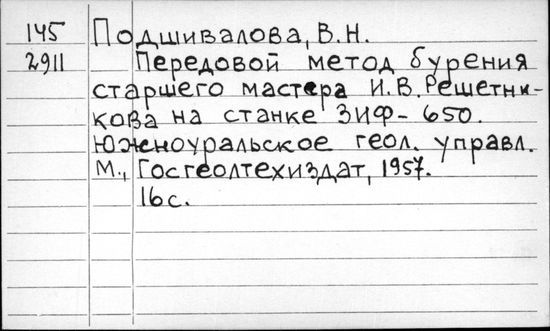 145 Подшивалова, В.Н.
2911 Передовой метод бурения
старшего мастера И.В. Решетни-
кова на станке ЗИФ-650.
Южноуральское геол. управл.
М., Госгеолтехиздат, 1957.
16с.